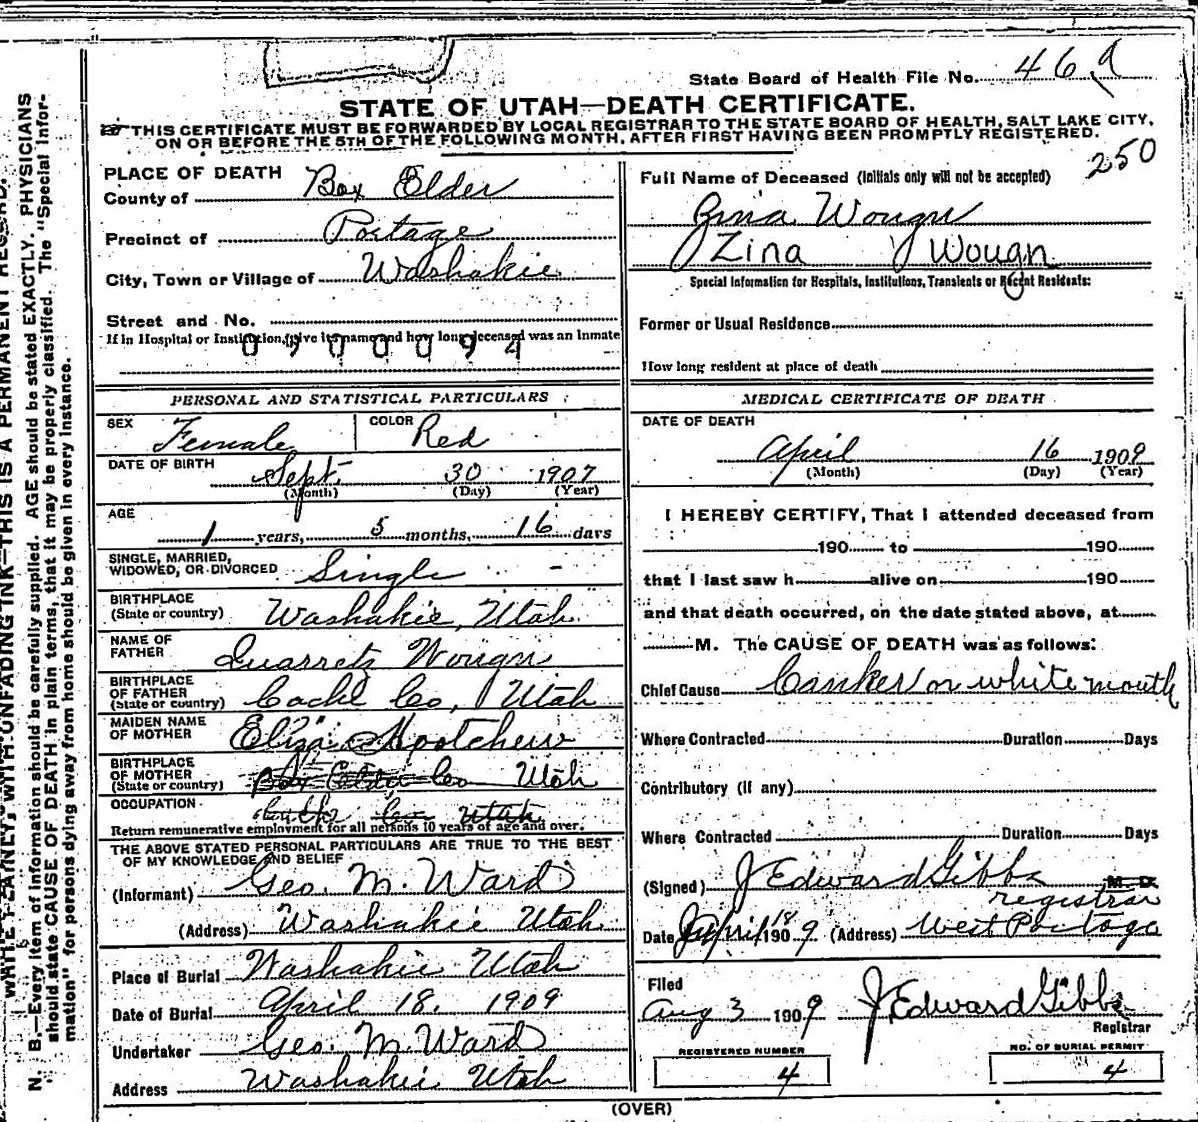 State Board of Health File No. 46
STATE OF UTAH—DEATH CERTIFICATE.
THIS CERTIFICATE MUST BE FORWARDED BY LOCAL REGISTRAR TO THE STATE BOARD OF HEALTH, SALT LAKE CITY,
ON OR BEFORE THE 5TH OF THE FOLLOWING MONTH, AFTER FIRST HAVING BEEN PROMPTLY REGISTERED.
250
PLACE OF DEATH
County of Box Elder
Precinct of Portage
City, Town or Village of Washakie
Street and No.
If in Hospital or Institution, give its name and how long deceased was an inmate
0700094
Full Name of Deceased (Initials only will not be accepted)
Zina Wougn
Zina Wougn
Special Information for Hospitals, Institutions, Transients or Recent Residents:
Former or Usual Residence
How long resident at place of death
PERSONAL AND STATISTICAL PARTICULARS
SEX Female COLOR Red
DATE OF BIRTH Sept. 30 1907
(Month) (Day) (Year)
AGE
1 years, 5 months, 16 days
SINGLE, MARRIED,
WIDOWED, OR DIVORCED Single
BIRTHPLACE
(State or country) Washakie, Utah
NAME OF
FATHER Quarretz Wougn
BIRTHPLACE
OF FATHER
(State or country) Cache Co, Utah
MAIDEN NAME
OF MOTHER Eliza Hootchew
BIRTHPLACE
OF MOTHER
(State or country) Box Elder Co Utah
OCCUPATION Utah
Return remunerative employment for all persons 10 years of age and over.
THE ABOVE STATED PERSONAL PARTICULARS ARE TRUE TO THE BEST
OF MY KNOWLEDGE AND BELIEF
(Informant) Geo. M. Ward
(Address) Washakie Utah
Place of Burial Washakie Utah
Date of Burial April 18. 1909
Undertaker Geo. M. Ward
Address Washakie Utah
MEDICAL CERTIFICATE OF DEATH
DATE OF DEATH
April 16 1909
(Month) (Day) (Year)
I HEREBY CERTIFY, That I attended deceased from
190 to 190
that I last saw h alive on 190
and that death occurred, on the date stated above, at
M. The CAUSE OF DEATH was as follows:
Chief Cause Canker or white mouth
Where Contracted Duration Days
Contributory (if any)
Where Contracted Duration Days
(Signed) J Edward Gibbs M. D.
registrar
Date April 18 1909 (Address) West Portage
Filed
Aug 3 1909 J. Edward Gibbs
Registrar
REGISTERED NUMBER
4
NO. OF BURIAL PERMIT
4
(OVER)
WRITE PLAINLY, WITH UNFADING INK—THIS IS A PERMANENT RECORD.
N. B.—Every item of information should be carefully supplied. AGE should be stated EXACTLY. PHYSICIANS
should state CAUSE OF DEATH in plain terms, that it may be properly classified. The "Special Infor-
mation" for persons dying away from home should be given in every instance.